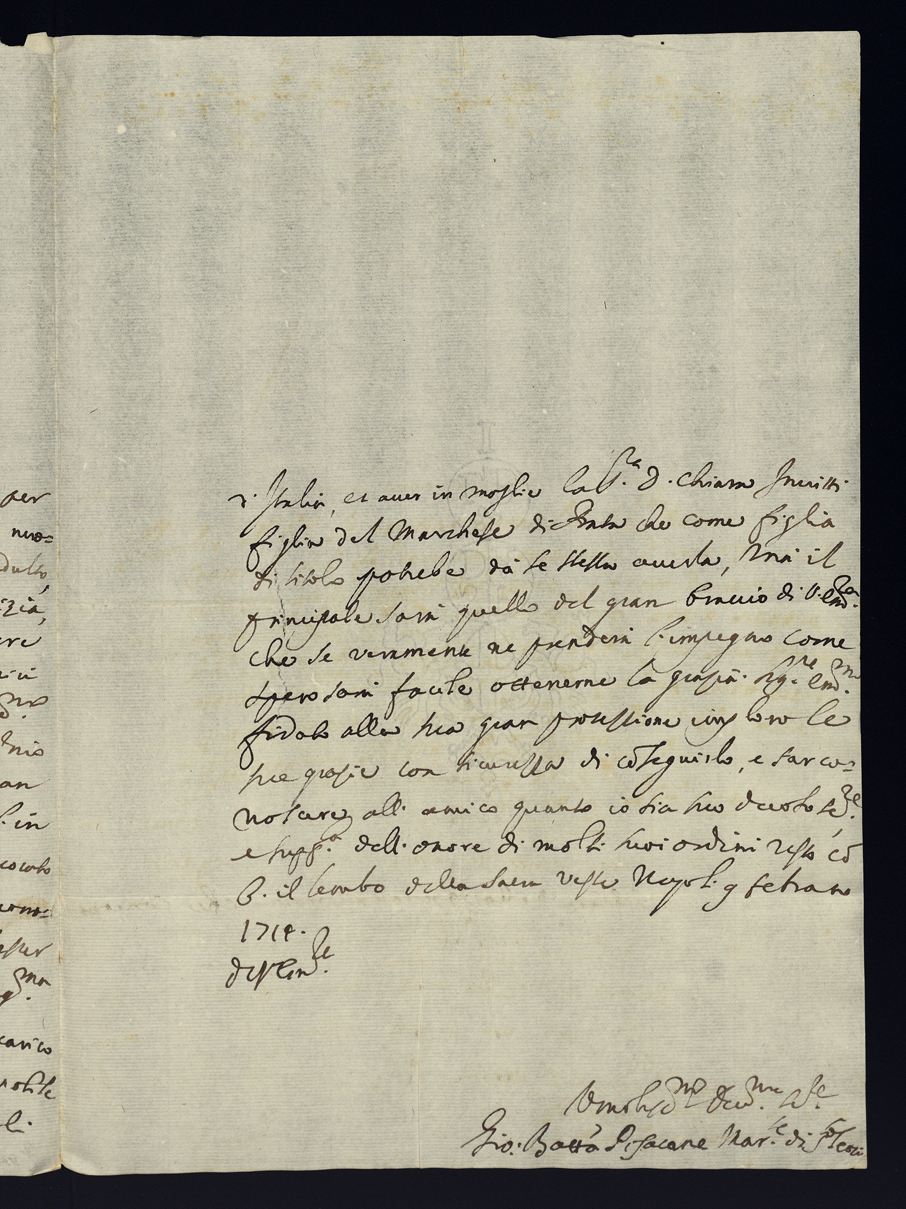 d'Italia, et aver in moglie la S.ra D. Chiara Invitti
figlia del Marchese di che come figlia
di titolo potrebe da se stessa averla, Mà il
principale sarà quello del gran braccio di V. Em.za
che se veramente ne prenderà l'impegno come
spero sarà facile ottenerne la grazia. Sig.re Em.mo
fidato alla sua gran protettione imploro le
sue grazie con sicurezza di cōseguirlo, e far co=
noscere all'amico quanto io sia suo devoto se.re
e supp.o dell'onore di molti suoi ordini resto cō
B. il lembo della sacra veste Napoli 9 febraro
1714.
di V. Em.ze
Umiliss.mo Dev.mo Se.re
Gio: Batta Pisacane Mar.se di